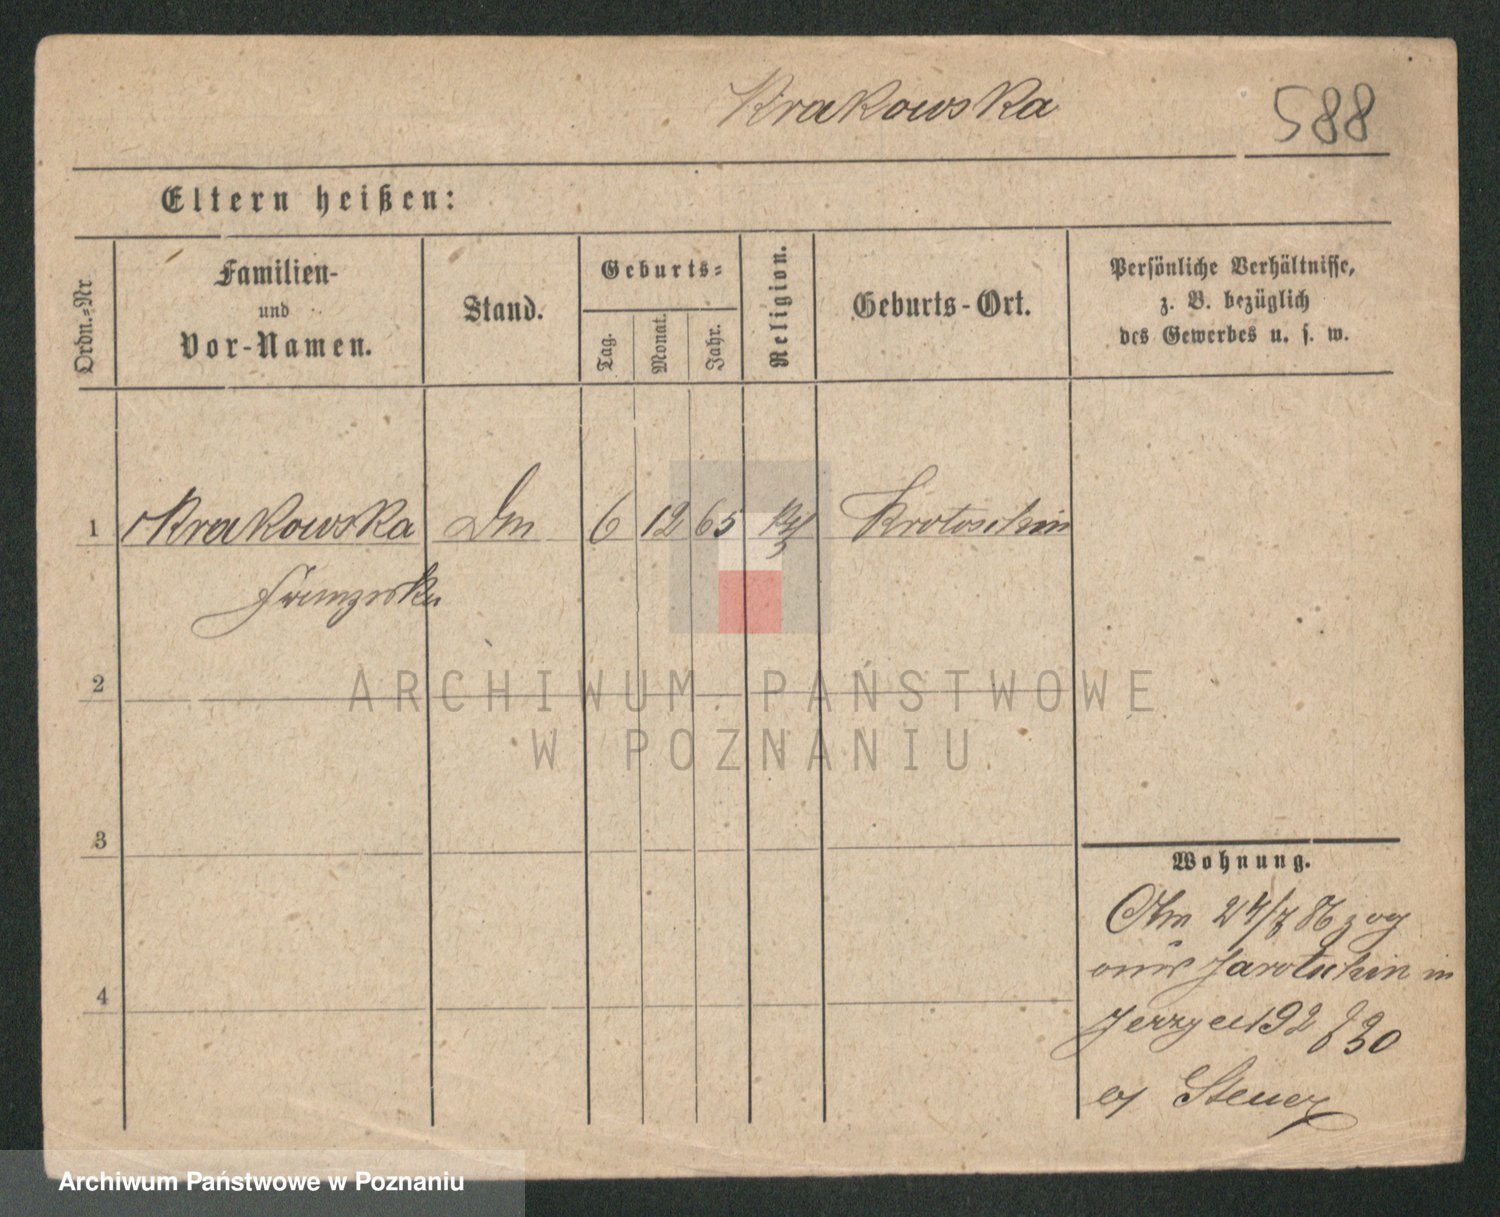 Krakowska
588
Eltern heißen:
Ordn.-Nr
Familien-
und
Vor-Namen.
Stand.
Geburts-
Tag.
Monat.
Jahr.
Religion.
Geburts-Ort.
Persönliche Verhältnisse,
z. B. bezüglich
des Gewerbes u. s. w.
1 Krakowska 6 12 65 Krotoschin
Franziska
2
ARCHIWUM PAŃSTWOWE
W POZNANIU
3
4
Wohnung.
24/7 86 zog
aus Jarotschin in
192
Steuer
Archiwum Państwowe w Poznaniu